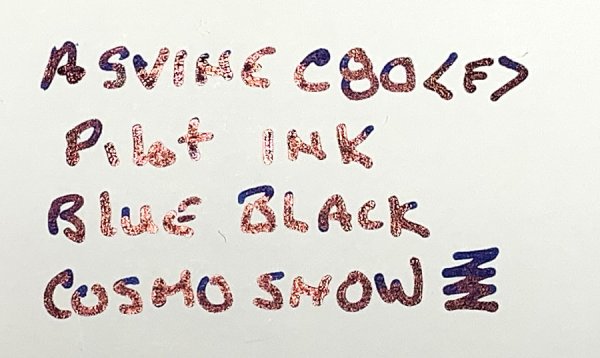 ASVINE C80<EF>
Pilot INK
BLUE BLACK
COSMO SNOW